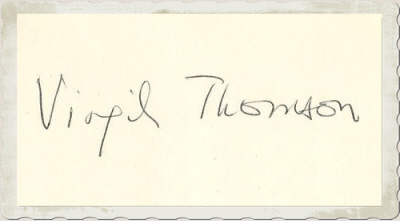 Virgil Thomson